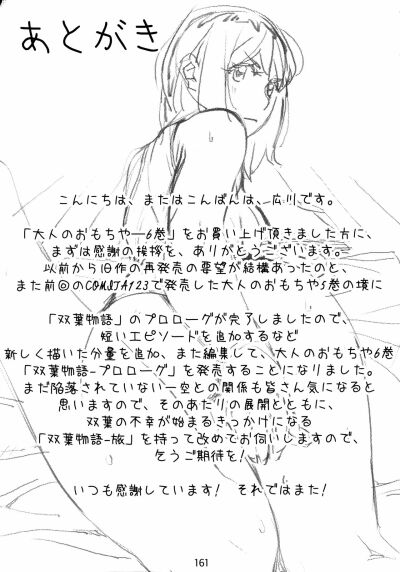 あとがき
こんにちは、またはこんばんは、広川です。
「大人のおもちゃー6巻」をお買い上げ頂きました方に、
まずは感謝の挨拶を、ありがとうございます。
以前から旧作の再発売の要望が結構あったのと、
また前◎のCOMSTA123で発売した大人のおもちゃ5巻の後に
「双葉物語」のプロローグが完了しましたので、
短いエピソードを追加するなど
新しく描いた分量を追加、また編集して、大人のおもちゃ6巻
「双葉物語-プロローグ」を発売することになりました。
まだ陥落されていない一空との関係も皆さん気になると
思いますので、そのあたりの展開とともに、
双葉の不幸が始まるきっかけになる
「双葉物語-旅」を持って改めてお伺いしますので、
乞うご期待を!
いつも感謝しています! それではまた!
161